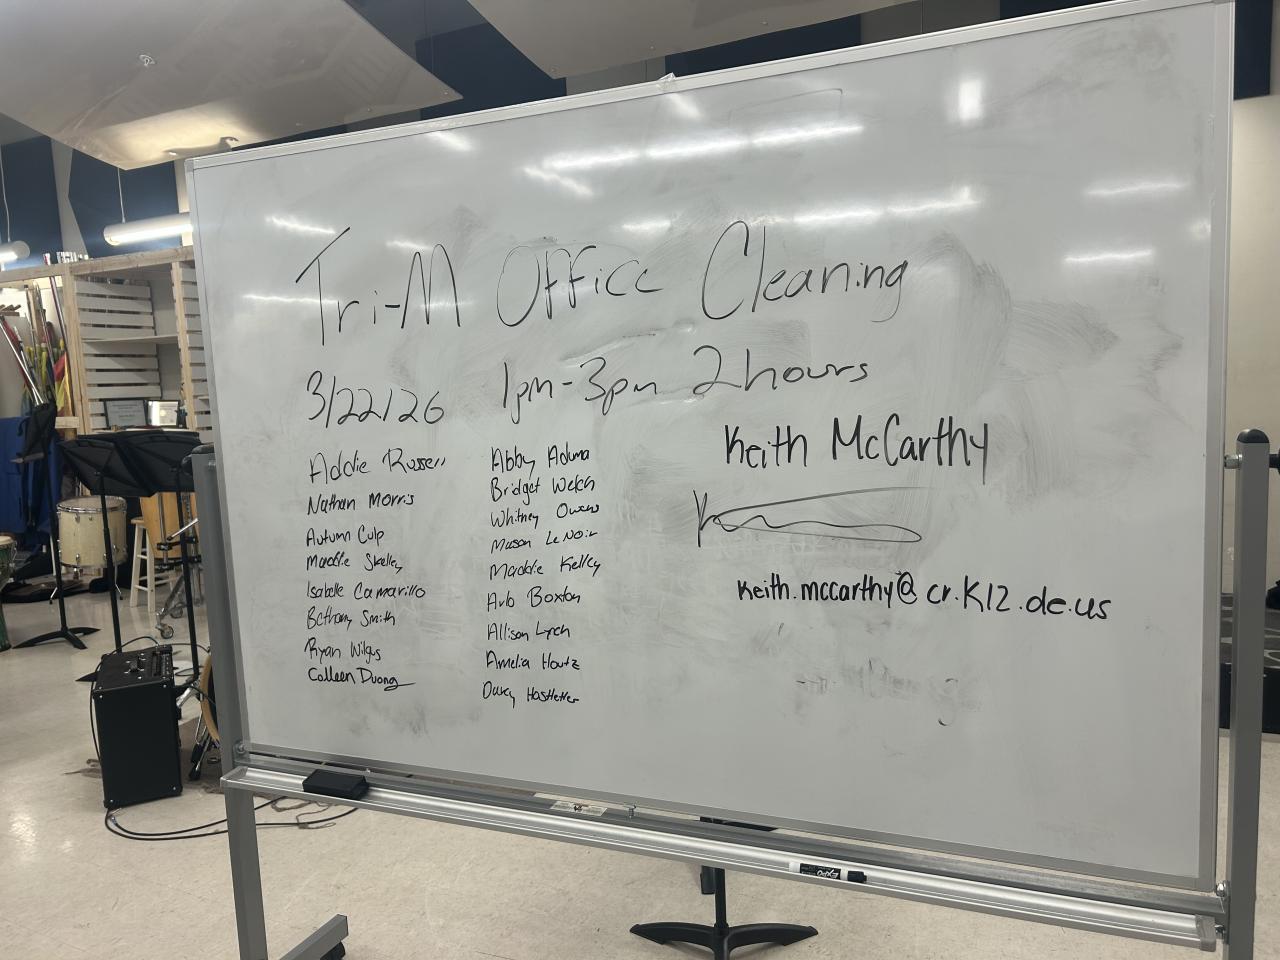 Tri-M Office Cleaning
3/22/26 1pm-3pm 2hours
Addie Russell
Nathan Morris
Autumn Culp
Maddie Skelley
Isabelle Camarillo
Bethany Smith
Ryan Wilgus
Colleen Duong
Abby Aduma
Bridget Welch
Whitney Owens
Mason LeNoir
Maddie Kelley
Arlo Boxton
Allison Lynch
Amelia Houtz
Hostetter
Keith McCarthy
keith.mccarthy@cr.k12.de.us
EXPO